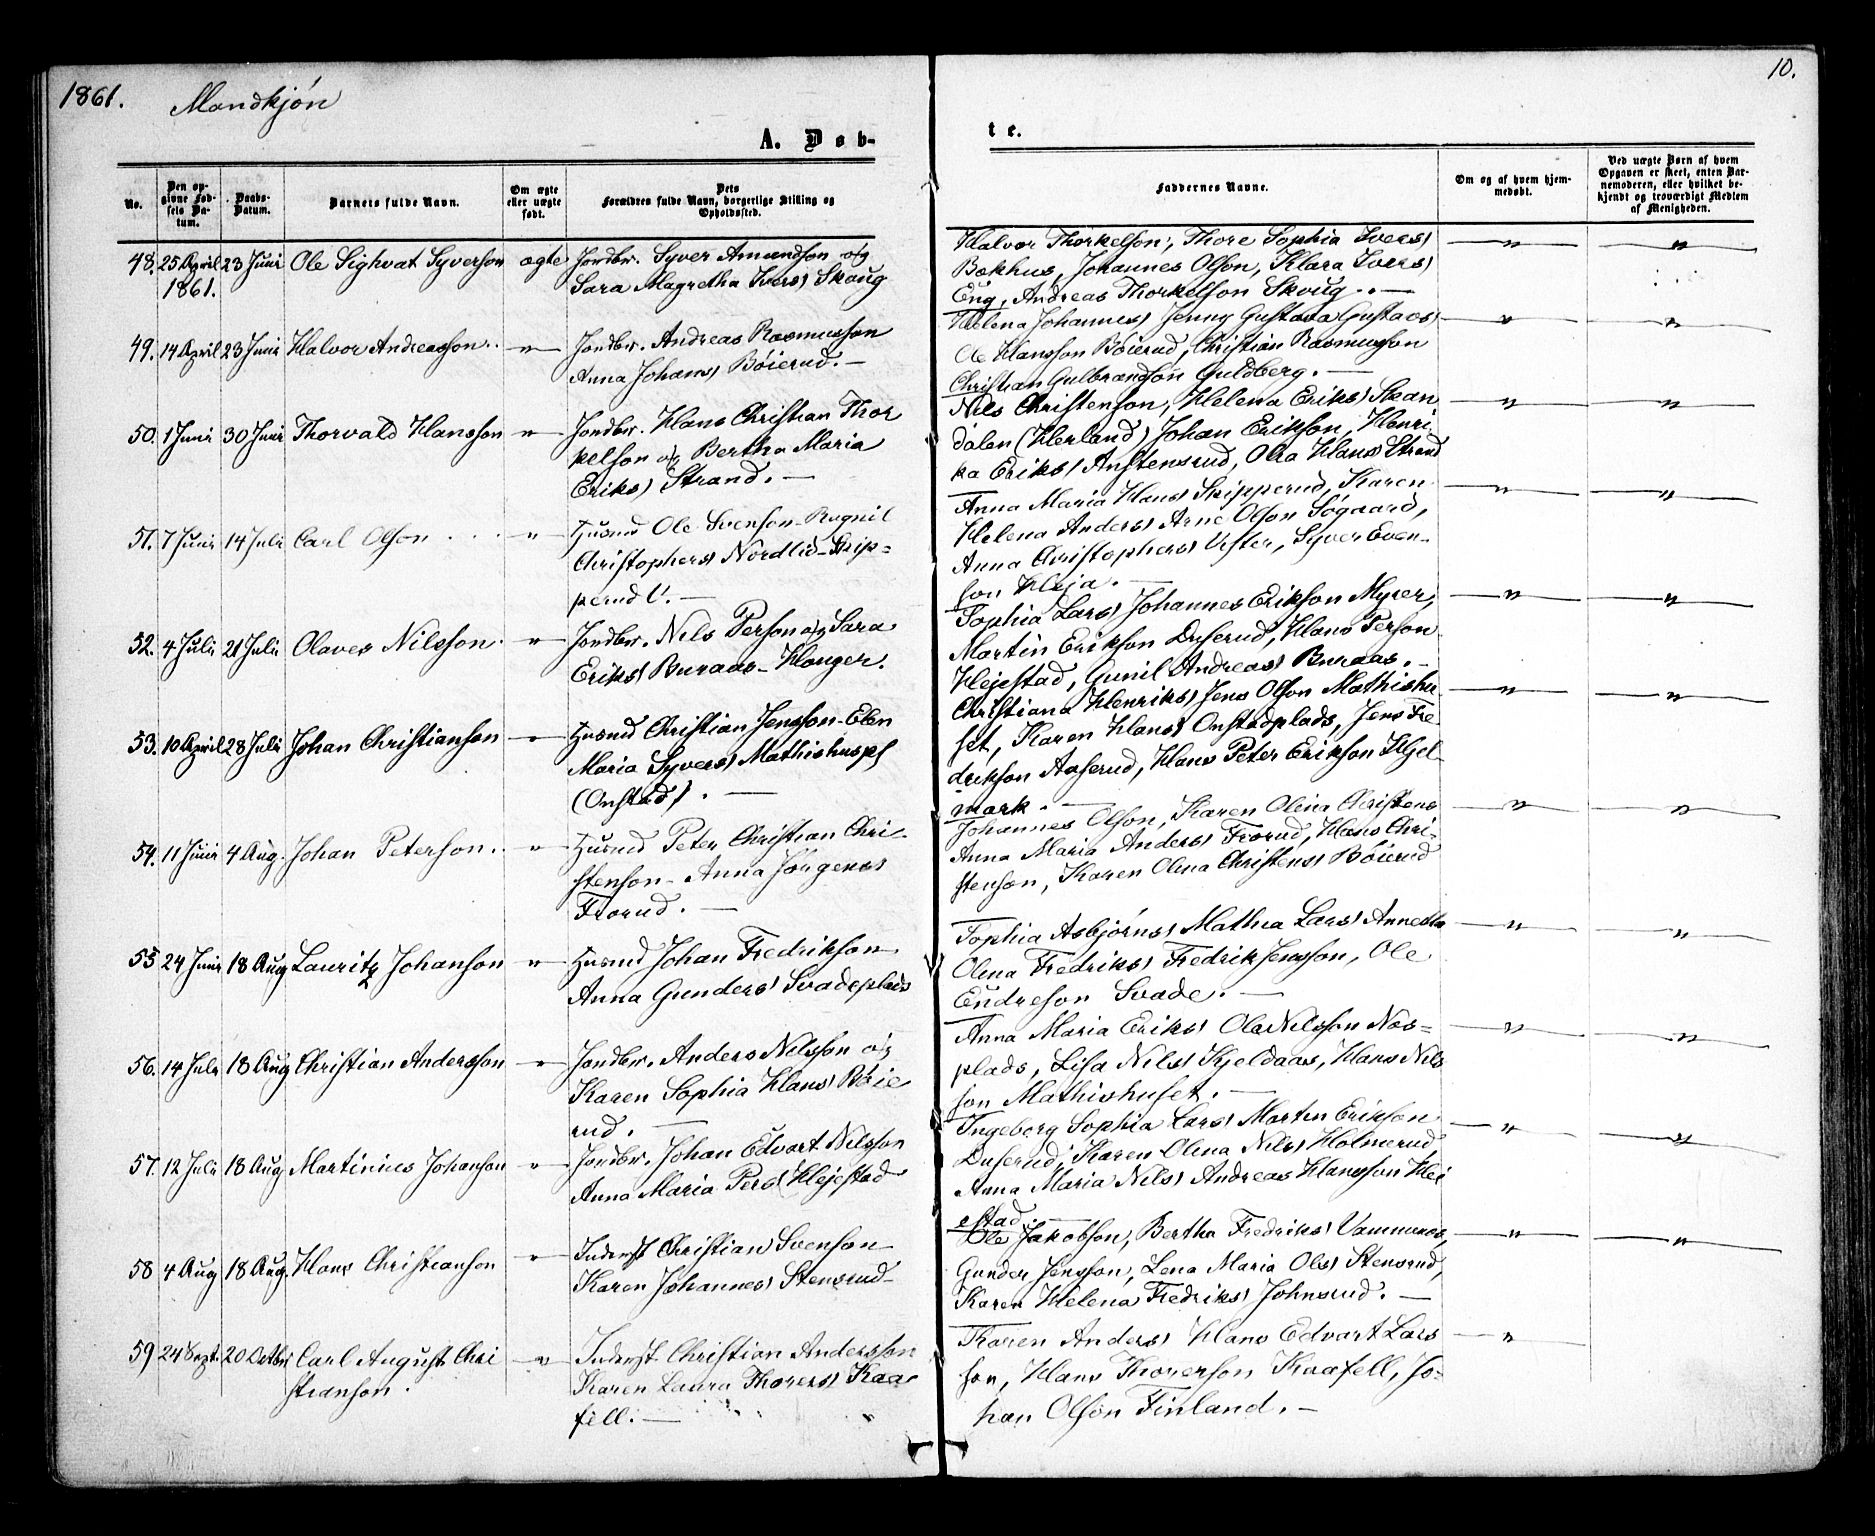 1861. Mandkjøn
10.
A. Døb-
te.
No.
Den op-
givne Fød-
sels Da-
tum.
Daabs-
Datum.
Barnets fulde Navn.
Om ægte
eller uægte
født.
Dets
Forældres fulde Navn, borgerlige Stilling og
Opholdssted.
Faddernes Navne.
Om og af hvem hjem-
medøbt.
Ved uægte Børn af hvem
Opgaven er skeet, enten Bar-
nemoderen, eller hvilket be-
kjendt og troværdigt Medlem
af Menigheden.
48. 25 April 23 Juni Ole Sighvat Syverson ægte Jordbr. Syver Amundson og
1861. Sara Magretha Ivers) Skoug
Halvor Thorkelson, Thore Sophia Ivers)
Bakhus, Johannes Olson, Klara Ivers)
Eng, Andreas Thorkelson Skoug. —
49. 14 April 23 Juni Halvor Andreasson. " Jordbr. Andreas Rasmusson
Anna Johans) Böierud. —
Helena Johannes) Jenny Gustava Gustavs)
Ole Hansson Böierud, Christian Rasmusson
Christian Gulbrandson Guldberg. —
50. 1 Juni 30 Juni Thorvald Hansson " Jordbr. Hans Christian Thor
kelson og Bertha Maria
Eriks) Strand. —
Nils Christenson, Helena Eriks) Skan
dalen (Herland) Johan Erikson, Henri
ka Eriks) Anstensrud, Olea Hans) Strand
51. 7 Juni 14 Juli Carl Olson " Husmd Ole Svenson - Ragnil
Christophers) Nordlid - Skip-
perud V. —
Anna Maria Hans) Skipperud, Karen
Helena Anders) Arne Olson Søgaard,
Anna Christophers) Vester, Syver Even-
son Heja. —
52. 4 Juli 21 Juli Olaves Nilsson. " Jordbr. Nils Person og Sara
Eriks) Buraas - Hanger.
Sophia Lars) Johannes Erikson Myrer,
Martin Erikson Duserud, Hans Person
Hejestad, Gunil Andreas) Buraas. —
53. 10 April 28 Juli Johan Christianson " Husmd Christian Jensson - Elen
Maria Syvers) Mathishuspl
(Onstad). —
Christiana Henriks) Jens Olson Mathishu
set, Karen Hans) Onstadplads, Jens Fre
drikson Aaserud, Hans Peter Erikson Hjel-
mark. —
54. 11 Juni 4 Aug. Johan Peterson. " Husmd Peter Christian Chri
stenson - Anna Jörgens)
Frorud. —
Johannes Olson, Karen Olina Christens
Anna Maria Anders) Frorud, Hans Chri-
stenson, Karen Olina Christens) Böierud
55 24 Juni 18 Aug Lauritz Johanson " Husmd Johan Fredrikson
Anna Gunders) Svadeplads
Sophia Asbjörns) Mathea Lars)
Olina Fredriks) Fredrik Jensson, Ole
Endreson Svade. —
56. 14 Juli 18 Aug Christian Andersson " Jordbr. Anders Nilsson og
Karen Sophia Hans) Böie
rud. —
Anna Maria Eriks) Ole Nilsson Næs-
plads, Lisa Nils) Kjeldaas, Hans Nils
son Mathishuset. —
57. 12 Juli 18 Aug Martinius Johanson " Jordbr. Johan Edvart Nilsson
Anna Maria Pers) Hejestad
Ingeborg Sophia Lars) Martin Erikson
Duserud, Karen Olina Nils) Holmerud
Anna Maria Nils) Andreas Hansson Hei
estad. —
58 4 Aug 18 Aug. Hans Christianson " Inderst Christian Svenson
Karen Johannes) Stensrud
Ole Jakobson, Bertha Fredriks) Vammenæs,
Gunder Jensson, Lena Maria Ols) Stensrud,
Karen Helena Fredriks) Johnsrud. —
59 24 Sept. 20 Octbr Carl August Chri " Inderst Christian Andersson
stianson. Karen Laura Thorers) Kaa
fell. —
Karen Anders) Hans Edvart Lars
son, Hans Thorerson Kaafell, Jo-
han Olson Finland. —